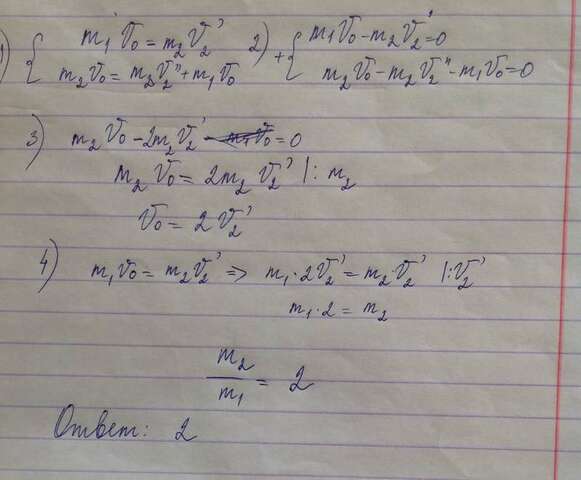 1) { m₁ V₀ = m₂ V₂' 2) + { m₁V₀ - m₂ V₂' = 0
m₂ V₀ = m₂ V₂'' + m₁ V₀ m₂ V₀ - m₂ V₂'' - m₁ V₀ = 0
3) m₂ V₀ - 2m₂ V₂' - m₁ V₀ = 0
m₂ V₀ = 2m₂ V₂' |: m₂
V₀ = 2 V₂'
4) m₁ V₀ = m₂ V₂' => m₁ · 2V₂' = m₂ V₂' |: V₂'
m₁ · 2 = m₂
m₂/m₁ = 2
Ответ: 2